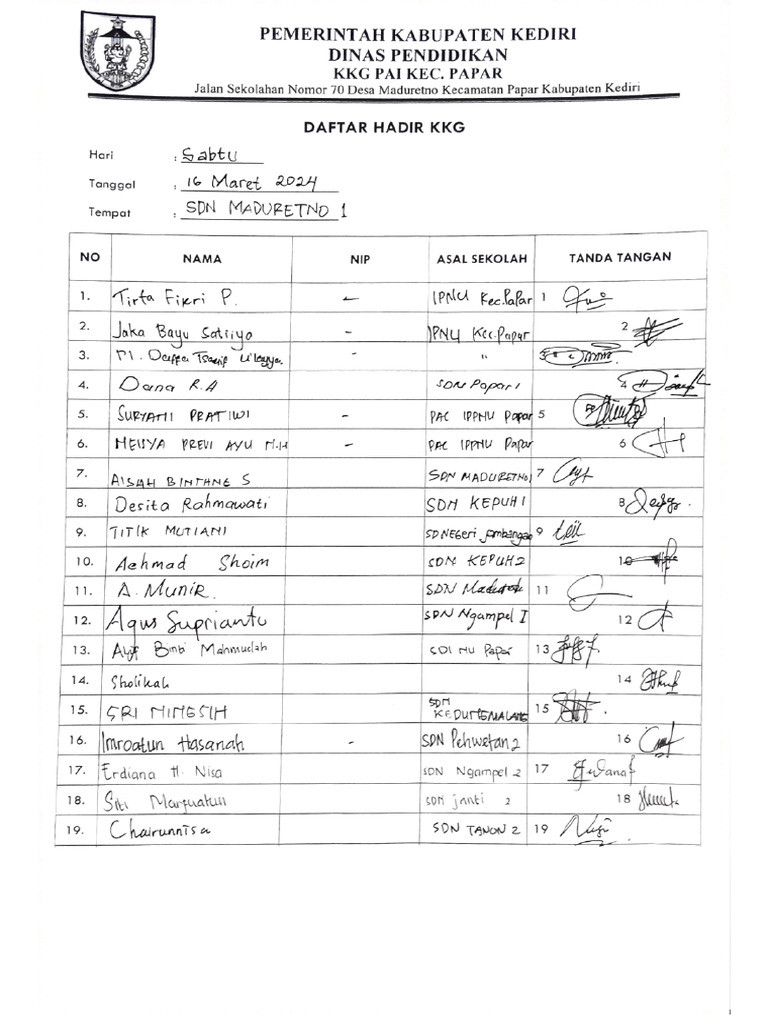 PEMERINTAH KABUPATEN KEDIRI
DINAS PENDIDIKAN
KKG PAI KEC. PAPAR
Jalan Sekolahan Nomor 70 Desa Maduretno Kecamatan Papar Kabupaten Kediri
DAFTAR HADIR KKG
Hari : Sabtu
Tanggal : 16 Maret 2024
Tempat : SDN MADURETNO 1
NO NAMA NIP ASAL SEKOLAH TANDA TANGAN
1. Tirta Fikri P. - IPNU Kec.Papar 1
2. Jaka Bayu Satriyo - IPNU Kec.Papar 2
3. M. Daffa - " 3
4. Dana R.A SDN Papar 1 4
5. SURYATI PRATIWI - PAC IPPNU Papar 5
6. PREVI AYU - PAC IPPNU Papar 6
7. AISAH BINTANG S SDN MADURETNO 1 7
8. Desita Rahmawati SDN KEPUH 1 8
9. TITIK MUTIANI SDNegeri Jambangan 9
10. Achmad Shoim SDN KEPUH 2 10
11. A. MUNIR. SDN 11
12. Agus Suprianto SDN Ngampel I 12
13. Binti Mahmudah SDI NU Papar 13
14. Sholikah 14
15. SRI SDN 15
16. Imroatun Hasanah - SDN Pehwetan 2 16
17. Erdiana H. Nisa SDN Ngampel 2 17
18. Siti SDN Janti 2 18
19. Chairunnisa SDN TANON 2 19